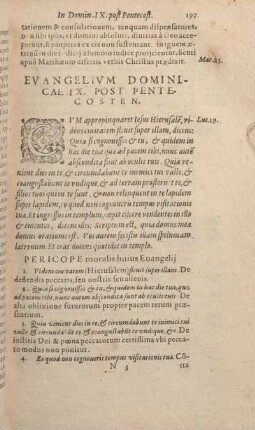 In Domin. IX. post Pentecost. 197
tationem & consolationem, tanquam dispensatores,
accepetur, si pauperes ex eis non sustentant. in ignem æ-
apud Matthæum vigesimo verbis Christus prædicit Mat.25.
EVANGELIVM DOMINI-
CAE IX. POST PENTE-
COSTEN.
CVM appropinquaret Iesus Hierusalẽ, vi- Luc.19.
dens ciuitatem fleuit super illam, dicens:
Quia si cognouisses & tu, & quidem in
hac die tua quæ ad pacem tibi, nunc autẽ
abscondita sunt ab oculis tuis. Quia ve-
nient dies in te, & circundabunt te inimici tui vallo, &
coangustabunt te vndique, & ad terram prosternẽt te, &
filios tuos qui in te sunt, & non relinquent in te lapidem
super lapidem, eo quod non cognoueris tempus visitationis
tuæ. Et ingressus in templum, cœpit eijcere vendentes in illo
& ementes, dicens illis: Scriptum est, quia domus mea
domus orationis est. Vos autem fecistis illam speluncam
latronum. Et erat docens quotidie in templo.
PERICOPE moralis huius Euangelij
1. Videns ciuitatem (Hierusalem) fleuit super illam. De
deflendis peccatis, seu nostris seu alienis.
2. Quia si cognouisses & tu, & quidem in hac die tua, quæ
ad pacem tibi, nunc autem abscondita sunt ab oculis tuis. De
alta obliuione futurorum propter pacem rerum præ-
sentium.
3. Quia venient dies in te, & circundabunt te inimici tui
vallo & circundabunt te & coangustabunt te vndique, &c. De
iustitia Dei & pœna peccatorum certissima vbi pecca-
to modus non ponitur.
4. Eo quod non cognoueris tempus visitationis tuæ. Cõ-
N 3 tra